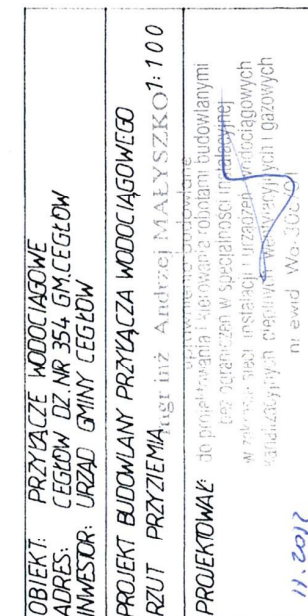 OBIEKT: PRZYŁĄCZE WODOCIĄGOWE
ADRES: CEGŁÓW DZ. NR 354 GM.CEGŁÓW
INWESTOR: URZĄD GMINY CEGŁÓW
PROJEKT BUDOWLANY PRZYŁĄCZA WODOCIĄGOWEGO
RZUT PRZYZIEMIA 1:100
mgr inż Andrzej MAŁYSZKO
uprawnienia budowlane
PROJEKTOWAŁ: do projektowania i kierowania robotami budowlanymi
bez ograniczeń w specjalności instalacyjnej
w zakresie sieci instalacji i urządzeń wodociągowych
kanalizacyjnych cieplnych wentylacyjnych i gazowych
nr ewid Wa
11.2017